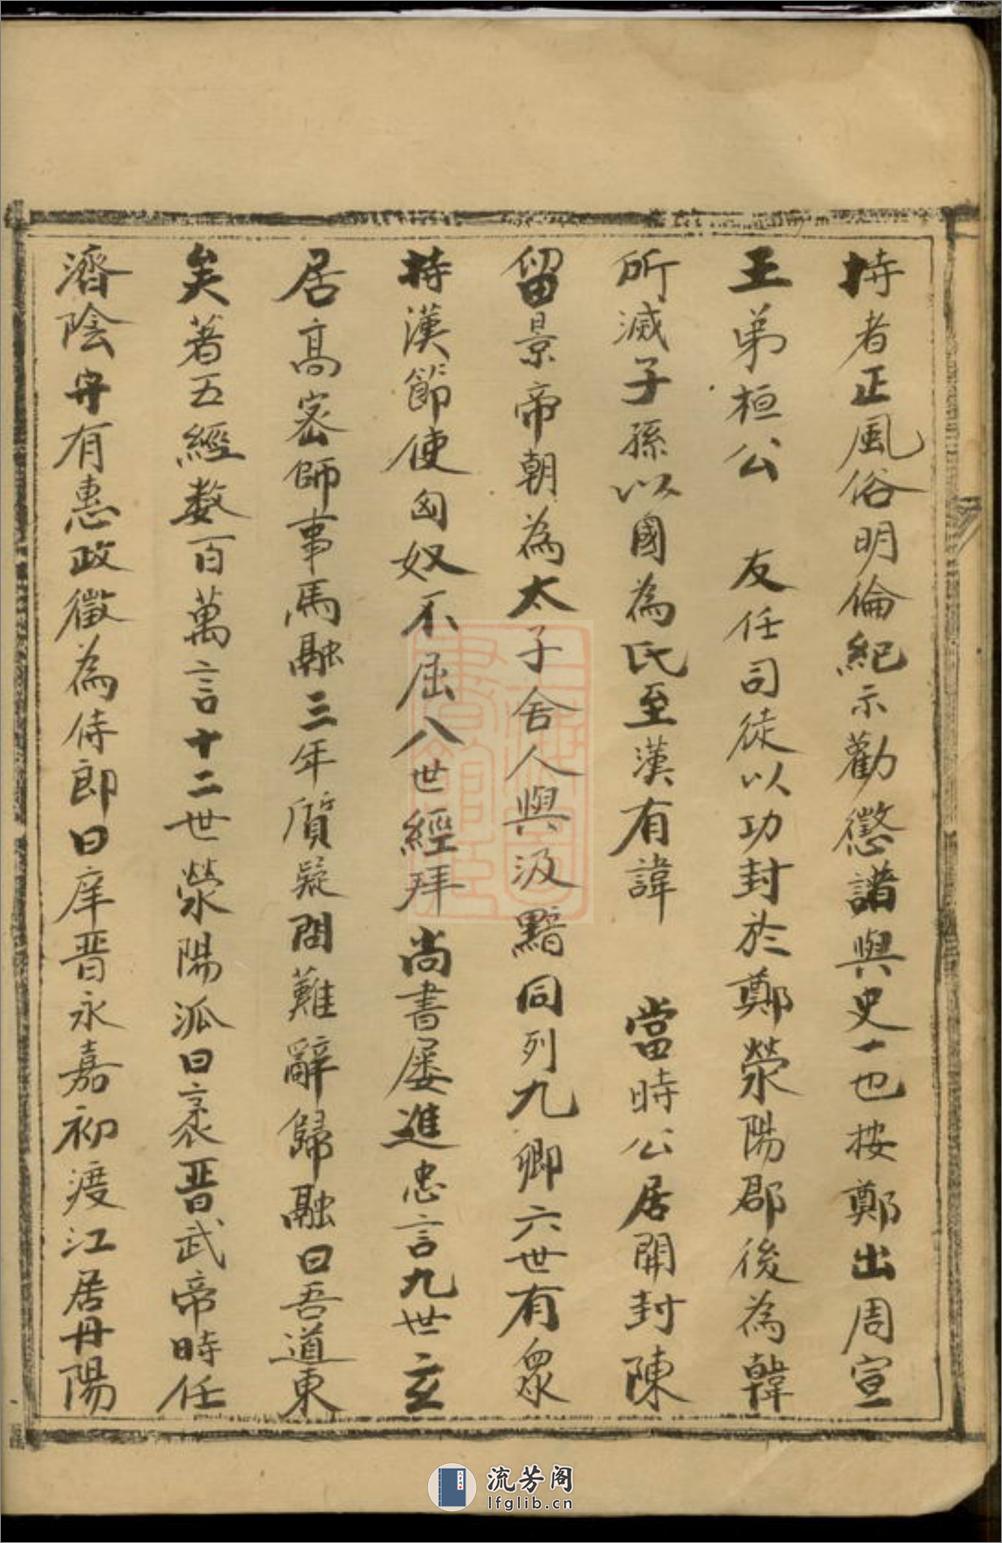 持者正風俗明倫紀示勸懲譜與史一也按鄭出周宣
王弟桓公　友任司徒以功封於鄭滎陽郡後為韓
所滅子孫以國為氏至漢有諱　當時公居開封陳
留景帝朝為太子舍人與汲黯同列九卿六世有眾
持漢節使匈奴不屈八世經拜尚書屡進忠言九世玄
居高密師事馬融三年質疑問難辭歸融曰吾道東
矣著五經數百萬言十二世滎陽派曰袤晋武帝時任
濟陰守有惠政徵為侍郎曰庠晋永嘉初渡江居丹陽
流芳阁
lfglib.cn